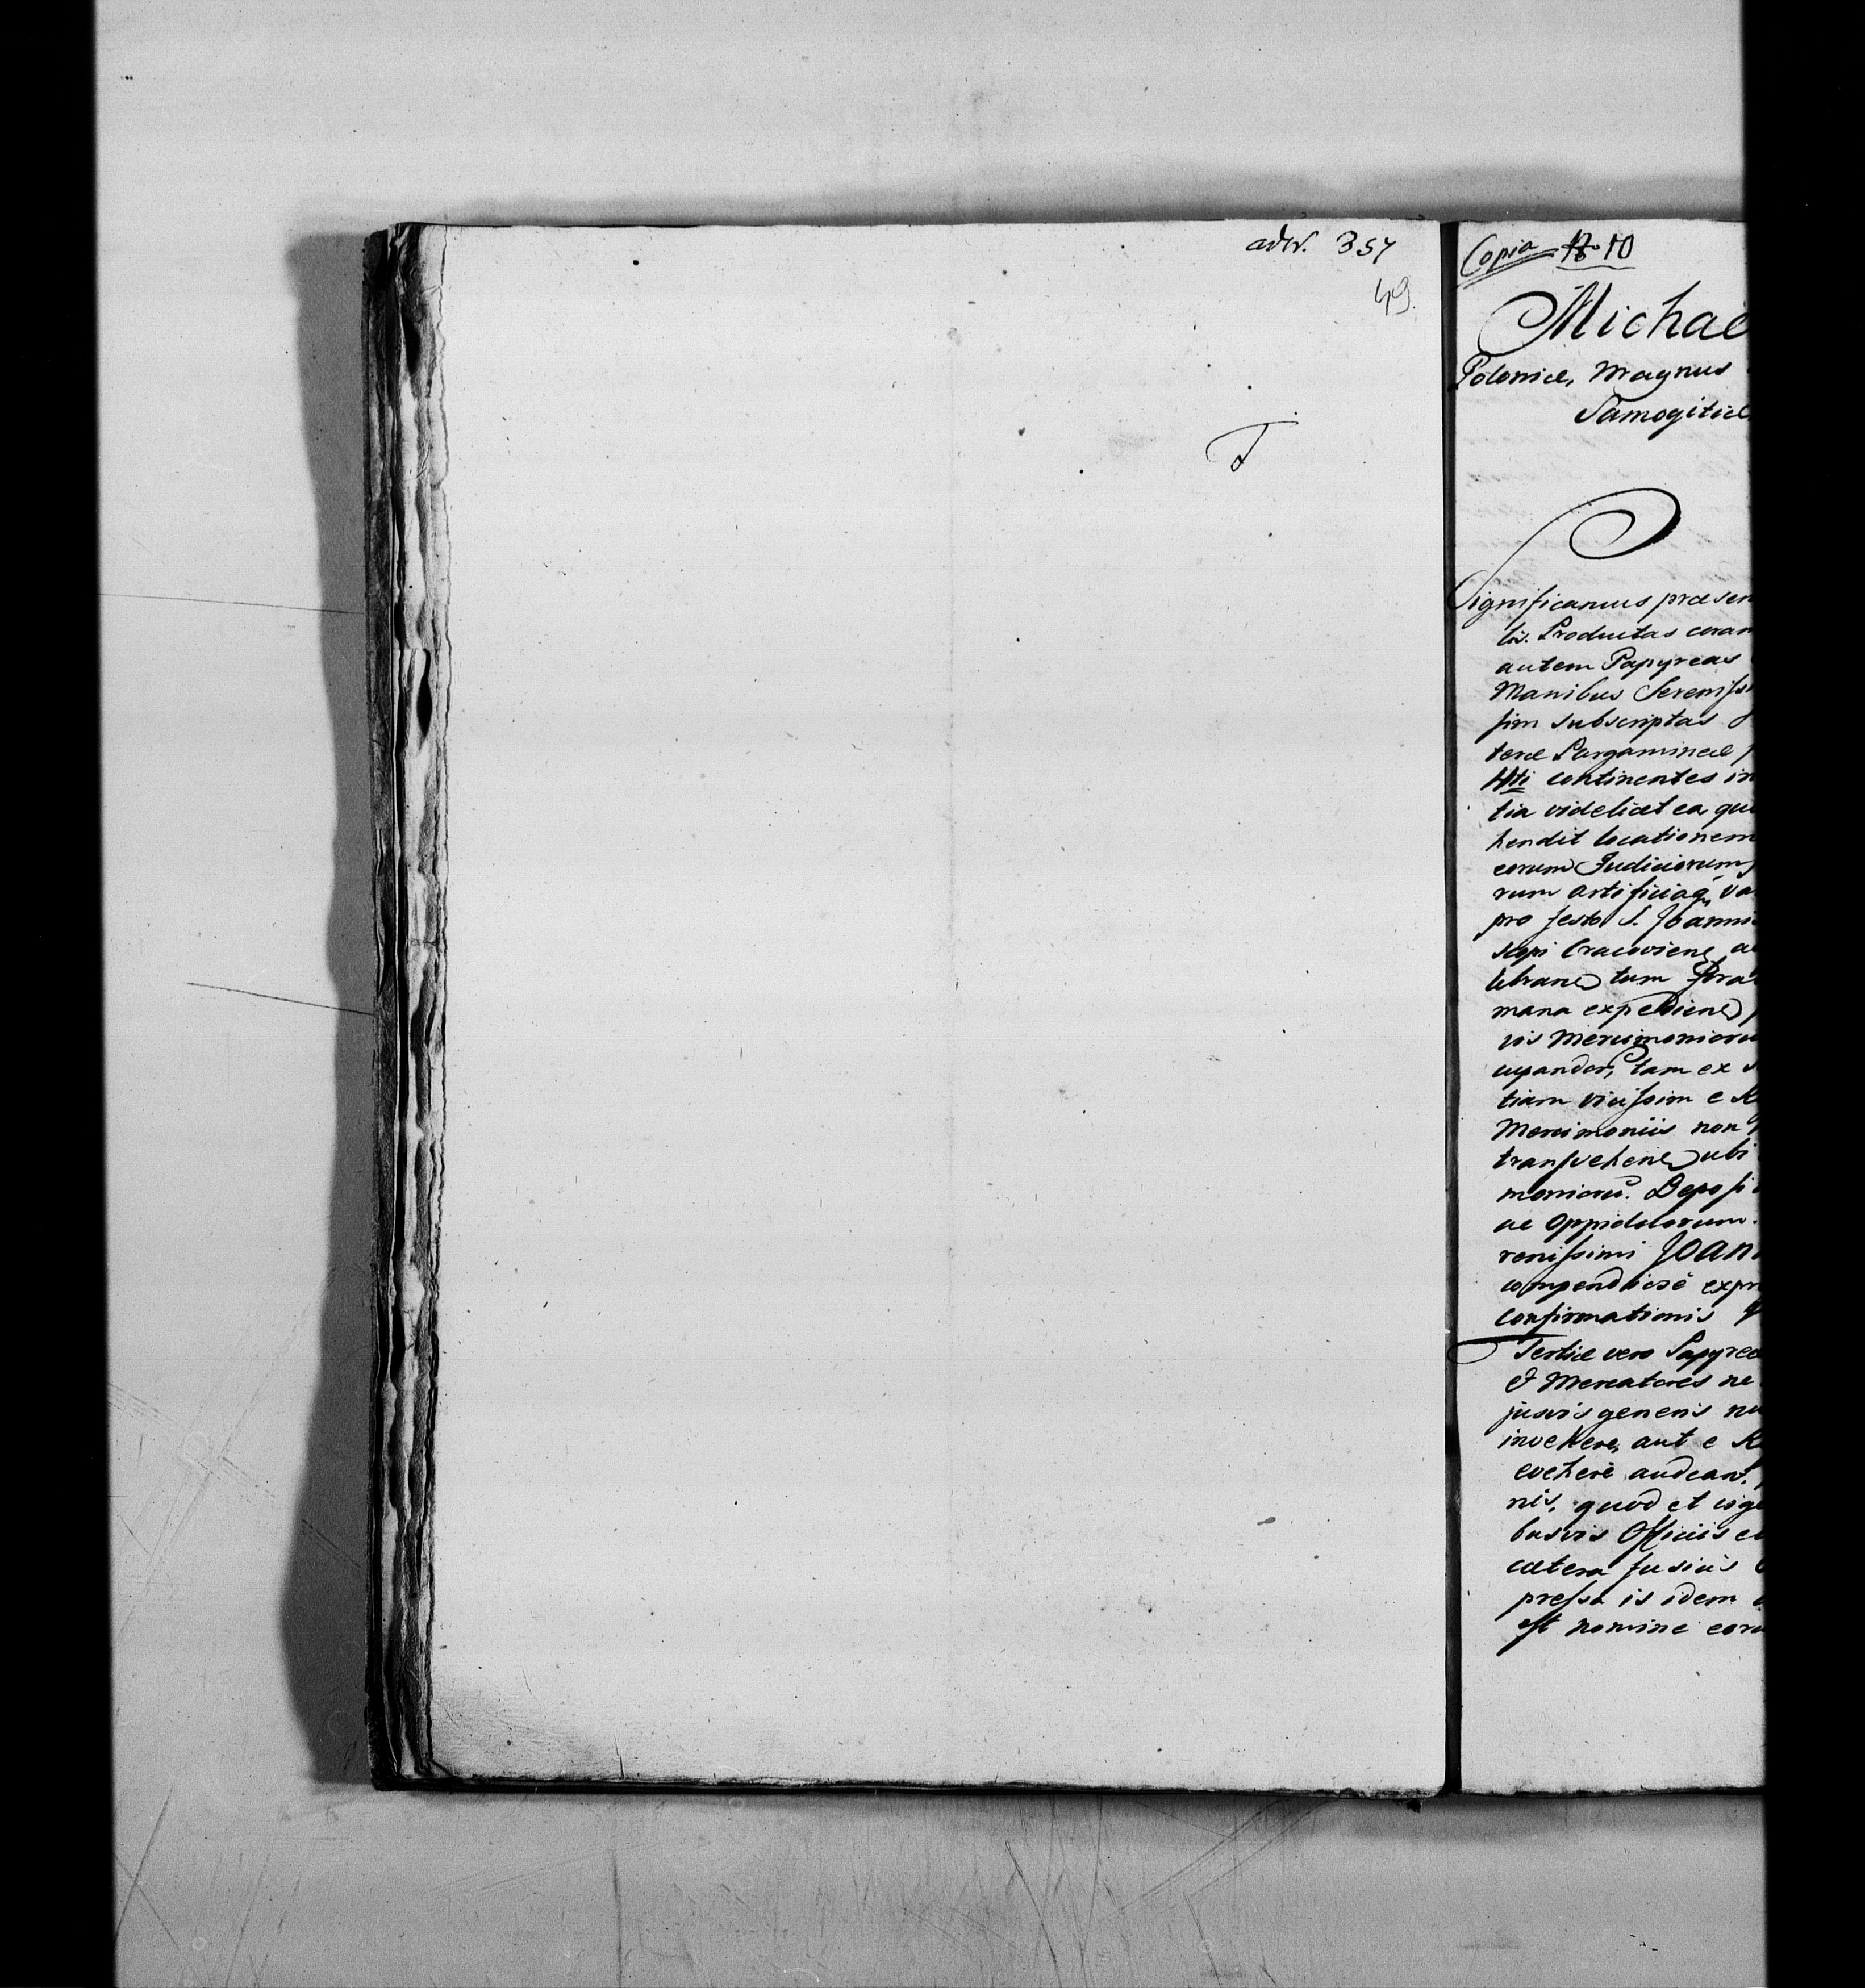 adw. 357
49.
Copia 10
Michae
Poloniæ, Magnus
Samogitiæ
Significamus præsen
tis. Productas coram
autem Papyreas
Manibus Serenissi
sim subscriptas
teræ Pargamineæ
continentes in
tia videlicet ea, qu
hendit locationem
eorum Judiciorum
rum artificiaq, va
pro festo S. Joannis
scopi Cracovien, a
lebran tum
mana expedien
jis Mercimonioru
cupandor, tam ex
tiam vicissim e R
Mercimoniis non
transvehen ubi
moniorũ. Deposi
ac Oppidulorum.
renissimi Joan
compendiosè expr
confirmationis
Tertiæ vero Papyreæ
& Mercatores ne
jusvis generis nu
invehere, aut e R
evehere audeant.
nis, quod et
busvis Officiis
cætera fusius
pressa is idem
est nomine eoru